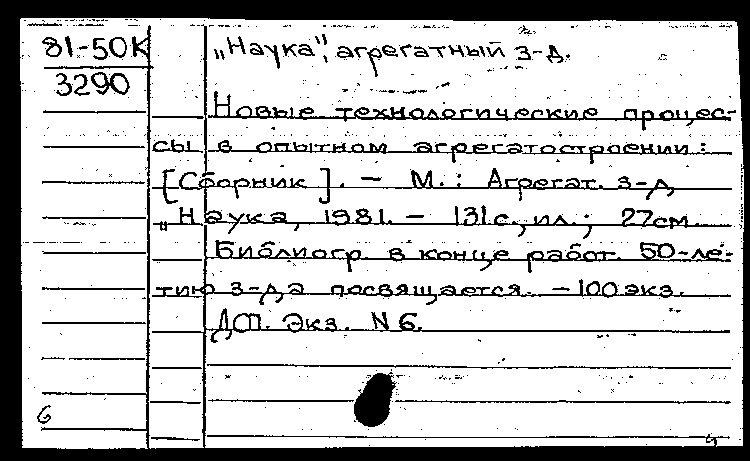 81-50К
3290
„Наука", агрегатный з-д.
Новые технологические процес-
сы в опытном агрегатостроении :
[Сборник]. — М. : Агрегат. з-д
„Наука, 1981. — 131 с., ил. ; 27см.
Библиогр. в конце работ. 50-ле-
тию з-да посвящается. — 100 экз.
ДСП. Экз. N 6.
6